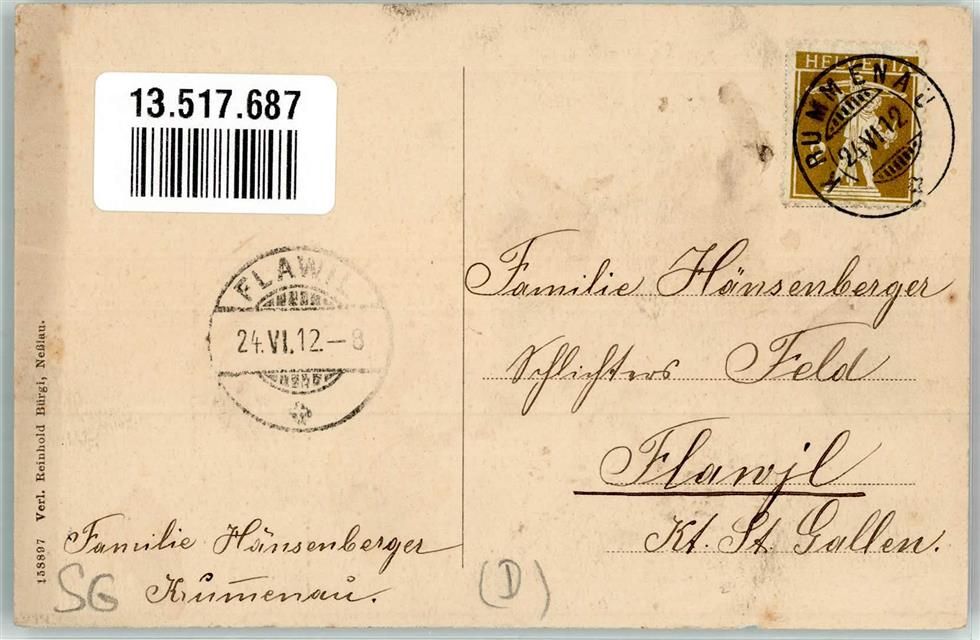 13.517.687
HELVETIA
KRUMMENAU
24.VI.12
FLAWIL
24.VI.12.–8
Familie Hänsenberger
Schlichters Feld
Flawjl
Kt. St. Gallen.
Familie Hänsenberger
Krum̄enau.
SG
(D)
158897 Verl. Reinhold Bürgi, Neßlau.